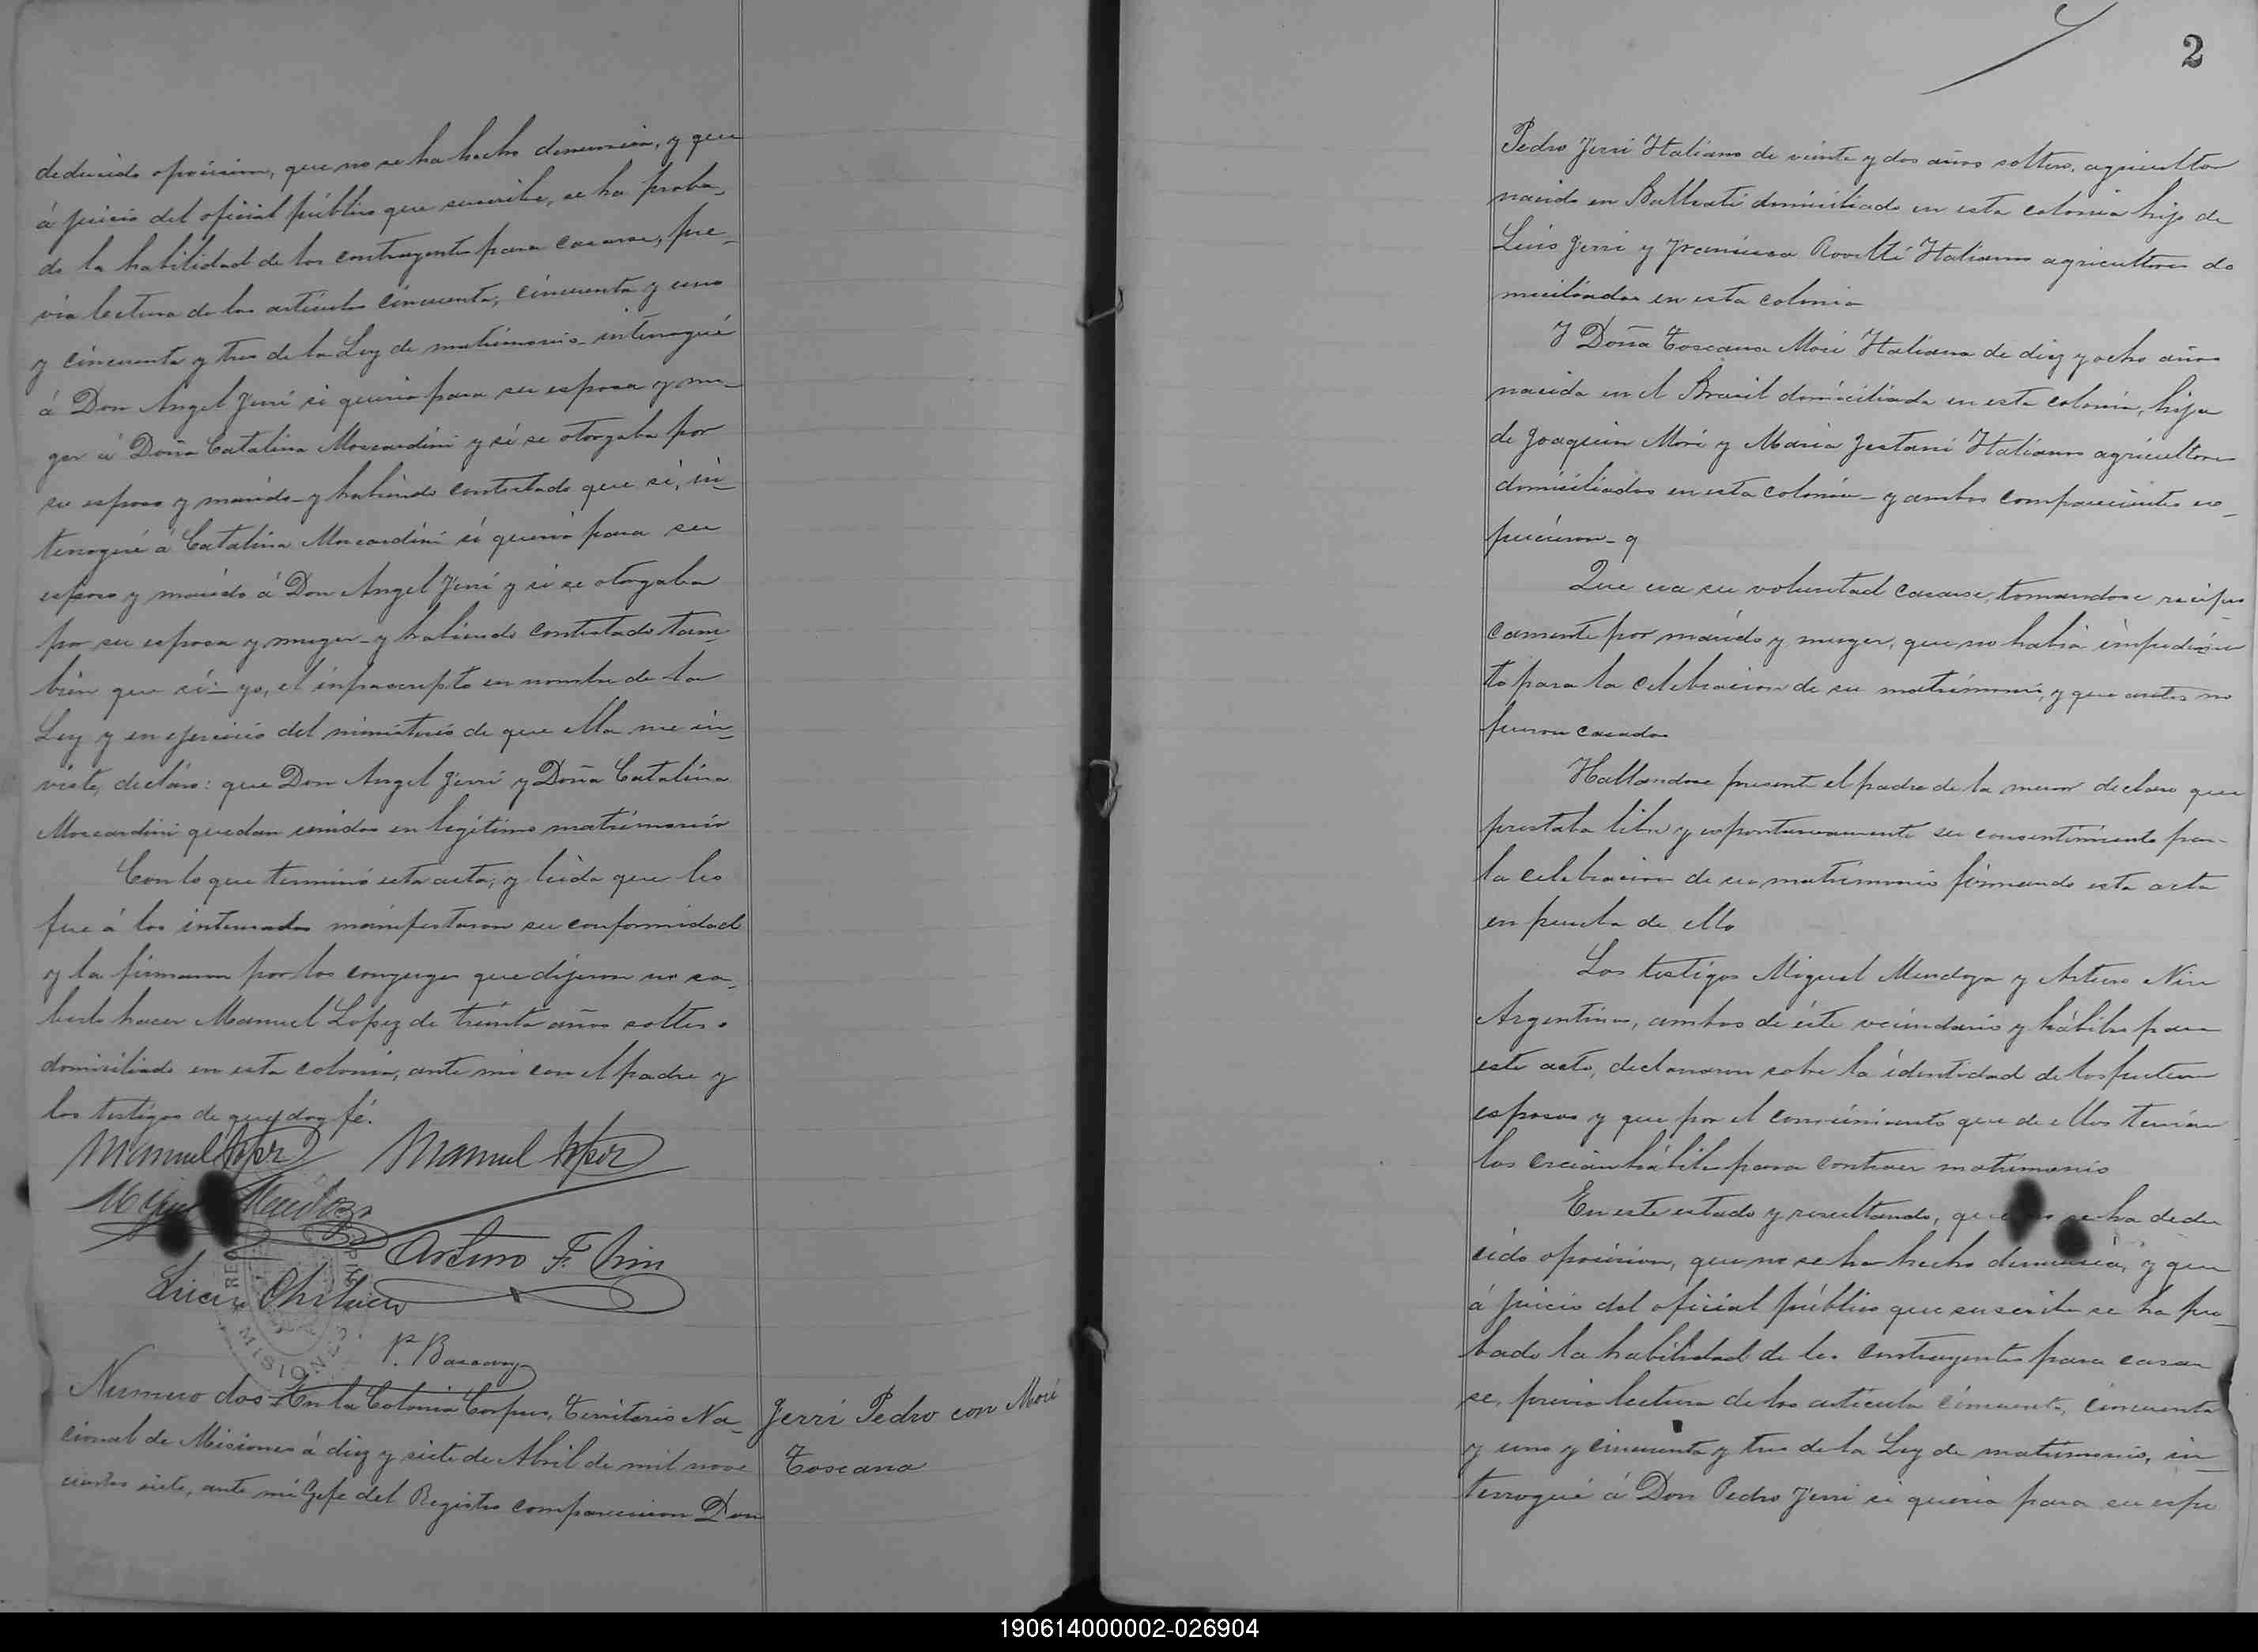 deducido oposicion, que no se ha hecho denuncia, y que
á juicio del oficial público que suscribe, se ha proba_
do la habilidad de los contrayentes para casarse, pre_
via lectura de los artículos cincuenta, cincuenta y uno
y cincuenta y tres de la Ley de matrimonio_ interrogué
á Don Angel Jerri si queria para su esposa y mu_
ger á Doña Catalina Moscardini y si se otorgaba por
su esposo y marido_ y habiendo contestado que si, in_
terrogué á Catalina Moscardini si queria para su
esposo y marido á Don Angel Jerri y si se otorgaba
por su esposa y muger_ y habiendo contestado tam_
bien que sí_ yo, el infrascripto en nombre de la
Ley y en ejercicio del ministerio de que ella me in_
viste, declaro: que Don Angel Jerri y Doña Catalina
Moscardini quedan unidos en legítimo matrimonio
Con lo que terminó esta acta, y leida que les
fue á los interesados manifestaron su conformidad
y la firmaron por los conyuges que dijeron no sa_
berlo hacer Manuel Lopez de treinta años soltero
domiciliado en esta colonia, ante mi con el padre y
los testigos de que doy fé.
Manuel Lopez Manuel Lopez
Miguel Mendoza
Arturo F. Nin
MISIONES
Numero dos_ En la Colonia Corpus, Territorio Na_
cional de Misiones á diez y siete de Abril de mil nove
cientos siete, ante mi Gefe del Registro comparecieron Don
Jerri Pedro con Mori
Toscana
2
Pedro Jerri Italiano de veinte y dos años soltero, agricultor
nacido en domiciliado en esta colonia hijo de
Luis Jerri y Francisca Italianos agricultores do
miciliados en esta colonia
Y Doña Toscana Mori Italiana de diez y ocho años
nacida en el Brasil domiciliada en esta colonia, hija
de Joaquin Mori y Maria Italianos agricultores
domiciliados en esta colonia_ y ambos comparecientes ex_
pusieron_
Que era su voluntad casarse, tomandose recipro
camente por marido y muger, que no habia impedimen
to para la celebracion de su matrimonio, y que antes no
fueron casados
Hallandose presente el padre de la menor declaro que
prestaba libre y espontaneamente su consentimiento para
la celebracion de su matrimonio firmando esta acta
en prueba de ello
Los testigos Miguel Mendoza y Arturo Nin
Argentinos, ambos de éste vecindario y hábiles para
este acto, declararon sobre la identidad de los futuros
esposos y que por el conocimiento que de ellos tenian
los creian hábiles para contraer matrimonio
En este estado y resultando, que no se ha dedu
cido oposicion, que no se ha hecho denuncia, y que
á juicio del oficial público que suscribe se ha pro_
bado la habilidad de los contrayentes para casar
se, previa lectura de los articulos cincuenta, cincuenta
y uno y cincuenta y tres de la Ley de matrimonio, in_
terrogué á Don Pedro Jerri si queria para su espo
190614000002-026904